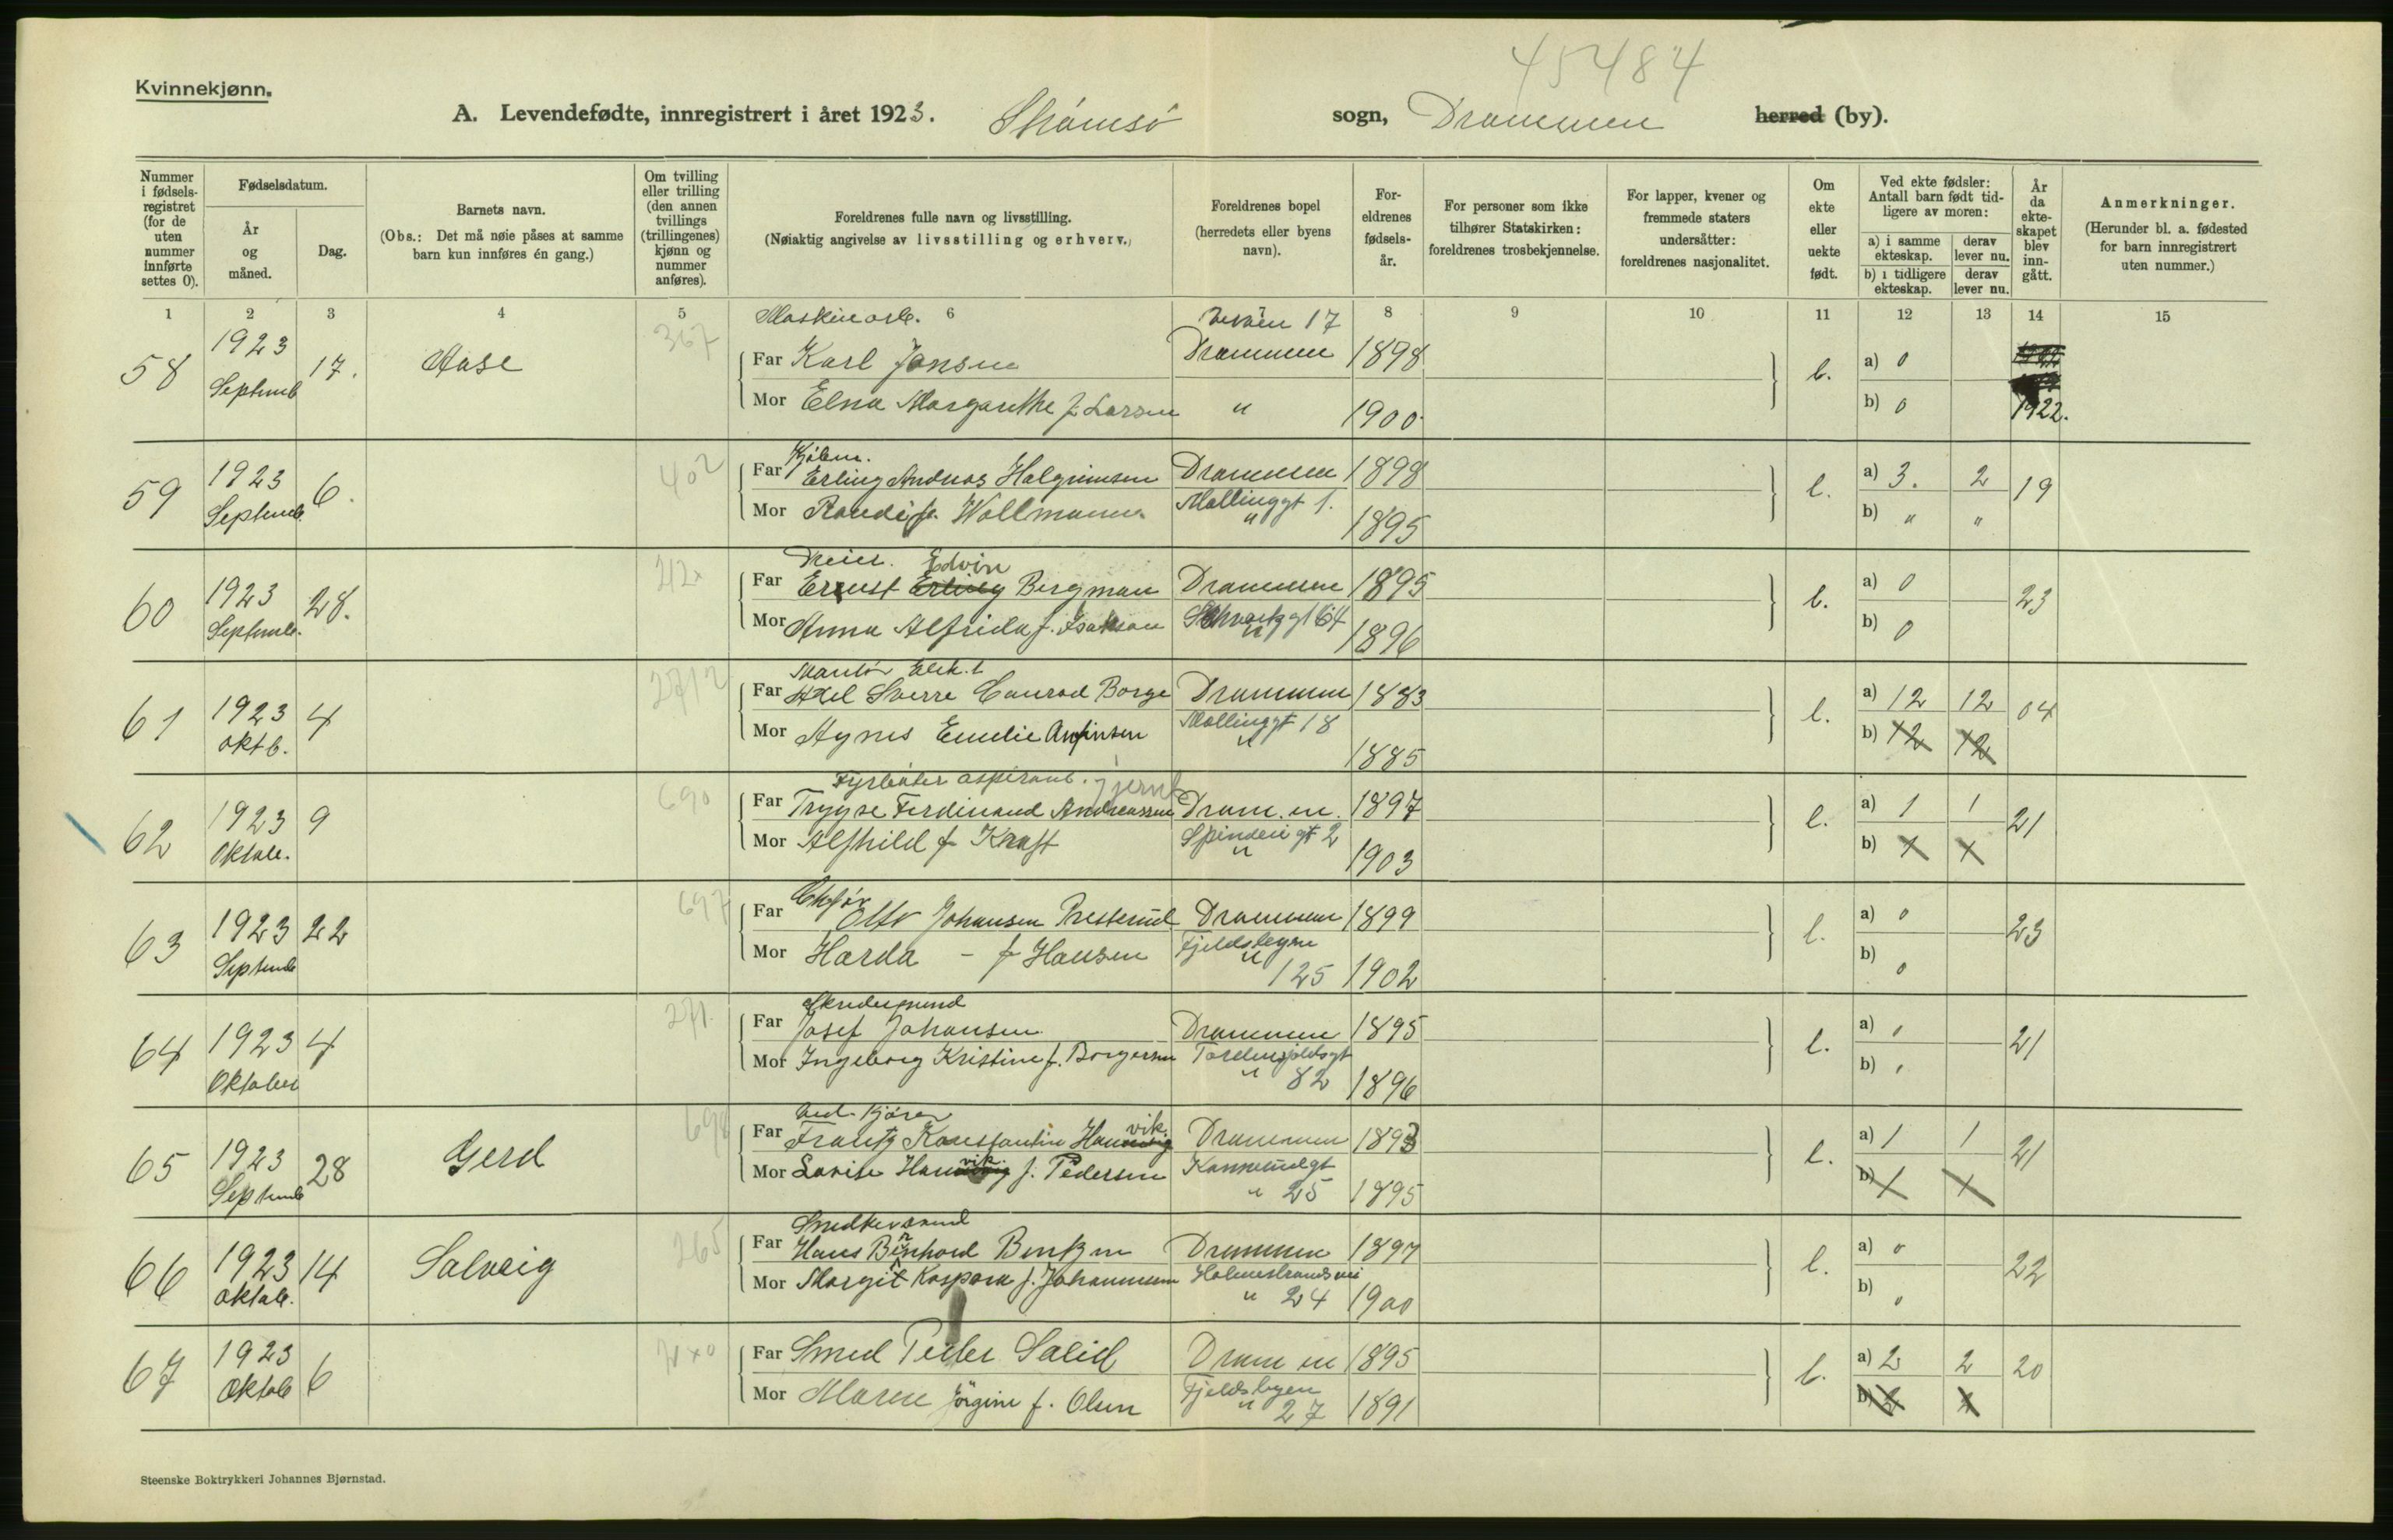 45484
Kvinnekjønn.
A. Levendefødte, innregistrert i året 1923. Strømsø sogn, Drammen herred (by).
Nummer i fødselsregistret (for de uten nummer innførte settes 0).
Fødselsdatum.
År og måned.
Dag.
Barnets navn.
(Obs.: Det må nøie påses at samme barn kun innføres én gang.)
Om tvilling eller trilling (den annen tvillings (trillingenes) kjønn og nummer anføres).
Foreldrenes fulle navn og livsstilling.
(Nøiaktig angivelse av livsstilling og erhverv.)
Foreldrenes bopel (herredets eller byens navn).
Foreldrenes fødselsår.
For personer som ikke tilhører Statskirken: foreldrenes trosbekjennelse.
For lapper, kvener og fremmede staters undersåtter: foreldrenes nasjonalitet.
Om ekte eller uekte født.
Ved ekte fødsler: Antall barn født tidligere av moren:
a) i samme ekteskap. derav lever nu.
b) i tidligere ekteskap. derav lever nu.
År da ekteskapet blev inngått.
Anmerkninger.
(Herunder bl. a. fødested for barn innregistrert uten nummer.)
1 2 3 4 5 6 8 9 10 11 12 13 14 15
Maskinarb. 17
58 1923 Septemb 17. Aase 367 Far Karl Jansen Drammen 1898 a) 0
Mor Elna Margarethe f. Larsen " 1900 b) 0 1922.
59 1923 Septemb. 6. 402 Far Erling Andreas Halgrimsen Drammen 1898 a) 3. 2 19
Mor Randi f. Wollmann Møllinggt 1. " 1895 b) " "
Dreier. Edvin
60 1923 Septemb. 28. 212 Far Ernst Erling Bergman Drammen 1895 a) 0 23
Mor Anna Alfrida f. Isakson Schwartzgt 64 " 1896 b) 0
Montør Elek.
61 1923 oktb. 4 Far Axel Sverre Conrad Borge Drammen 1883 a) 12 12 04
Mor Agnes Emelie Arnfinsen Møllinggt 18 " 1885 b) 12 12
Fyrbøter aspirant.
62 1923 Oktob. 9 690 Far Trygve Ferdinand Andreassen Dram.en. 1897 a) 1 1 21
Mor Alfhild f Kraft Spinderigt 2 " 1903 b) 1 1
63 1923 Septemb 22 697 Far Otto Johansen Presterud Drammen 1899 a) 0 23
Mor Harda - f Hansen Fjeldsbyen " 125 1902 b) 0
Skredersvend
64 1923 Oktober 4 271 Far Josef Johansen Drammen 1895 a) 21
Mor Ingeborg Kristine f. Borgersen Tordenskjoldsgt " 82 1896 b)
65 1923 Septemb 28 Gerd Far Frantz Konstantin Hannevik. Drammen 1893 a) 1 1 21
Mor Lovise Hannevik. f. Pedersen " 25 1895 b) 1 1
66 1923 Oktob. 14 Solveig 265 Far Hans Bernhard Bentzen Drammen 1897 a) 0 22
Mor Margit Kaspara f. Johannessen Holmestrandsvei " 24 1900 b) 0
67 1923 Oktob 6 Far Smed Peder Solid Dram en 1895 a) 2 2 20
Mor Maren Jørgine f. Olsen Fjeldsbyen " 27 1891 b)
Steenske Boktrykkeri Johannes Bjørnstad.